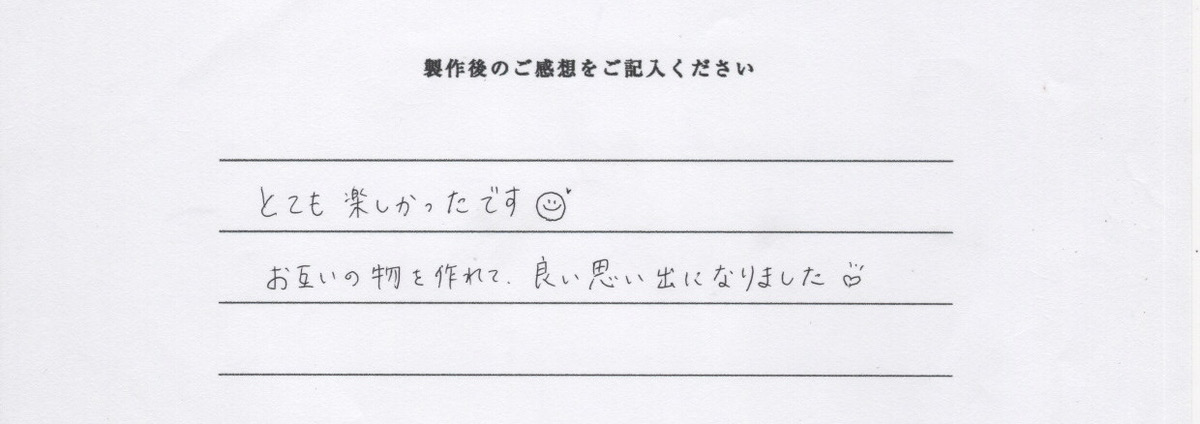 製作後のご感想をご記入ください
とても楽しかったです
お互いの物を作れて、良い思い出になりました